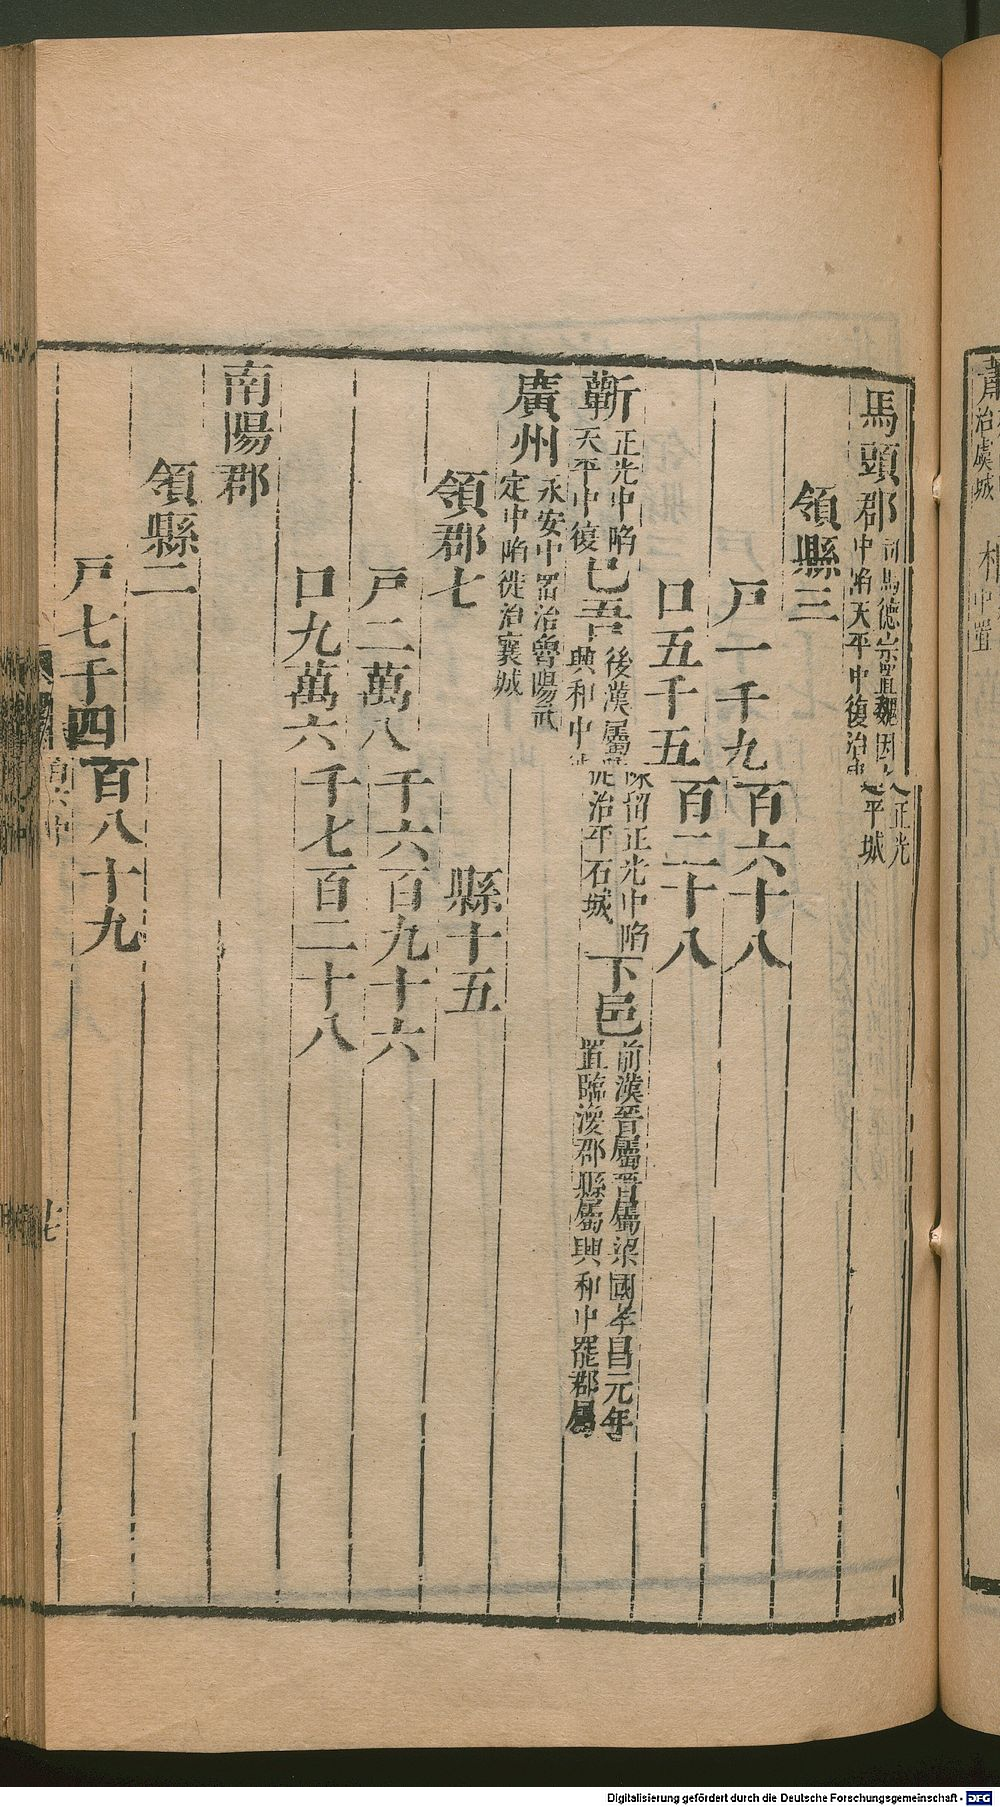 馬頭郡司馬德宗置魏因之正光中陷天平中復治建平城
領縣三
戸一千九百六十八
口五千五百二十八
蘄正光中陷天平中復 己吾後漢屬陳留正光中陷興和中徙治平石城 下邑前漢晉屬晉屬梁國孝昌元年置臨渙郡縣屬興和中罷郡屬
廣州永安中置治魯陽武定中陷徙治襄城
領郡七 縣十五
戸二萬八千六百九十六
口九萬六千七百二十八
南陽郡
領縣二
戸七千四百八十九
七
治虞城
中置
Digitalisierung gefördert durch die Deutsche Forschungsgemeinschaft - DFG